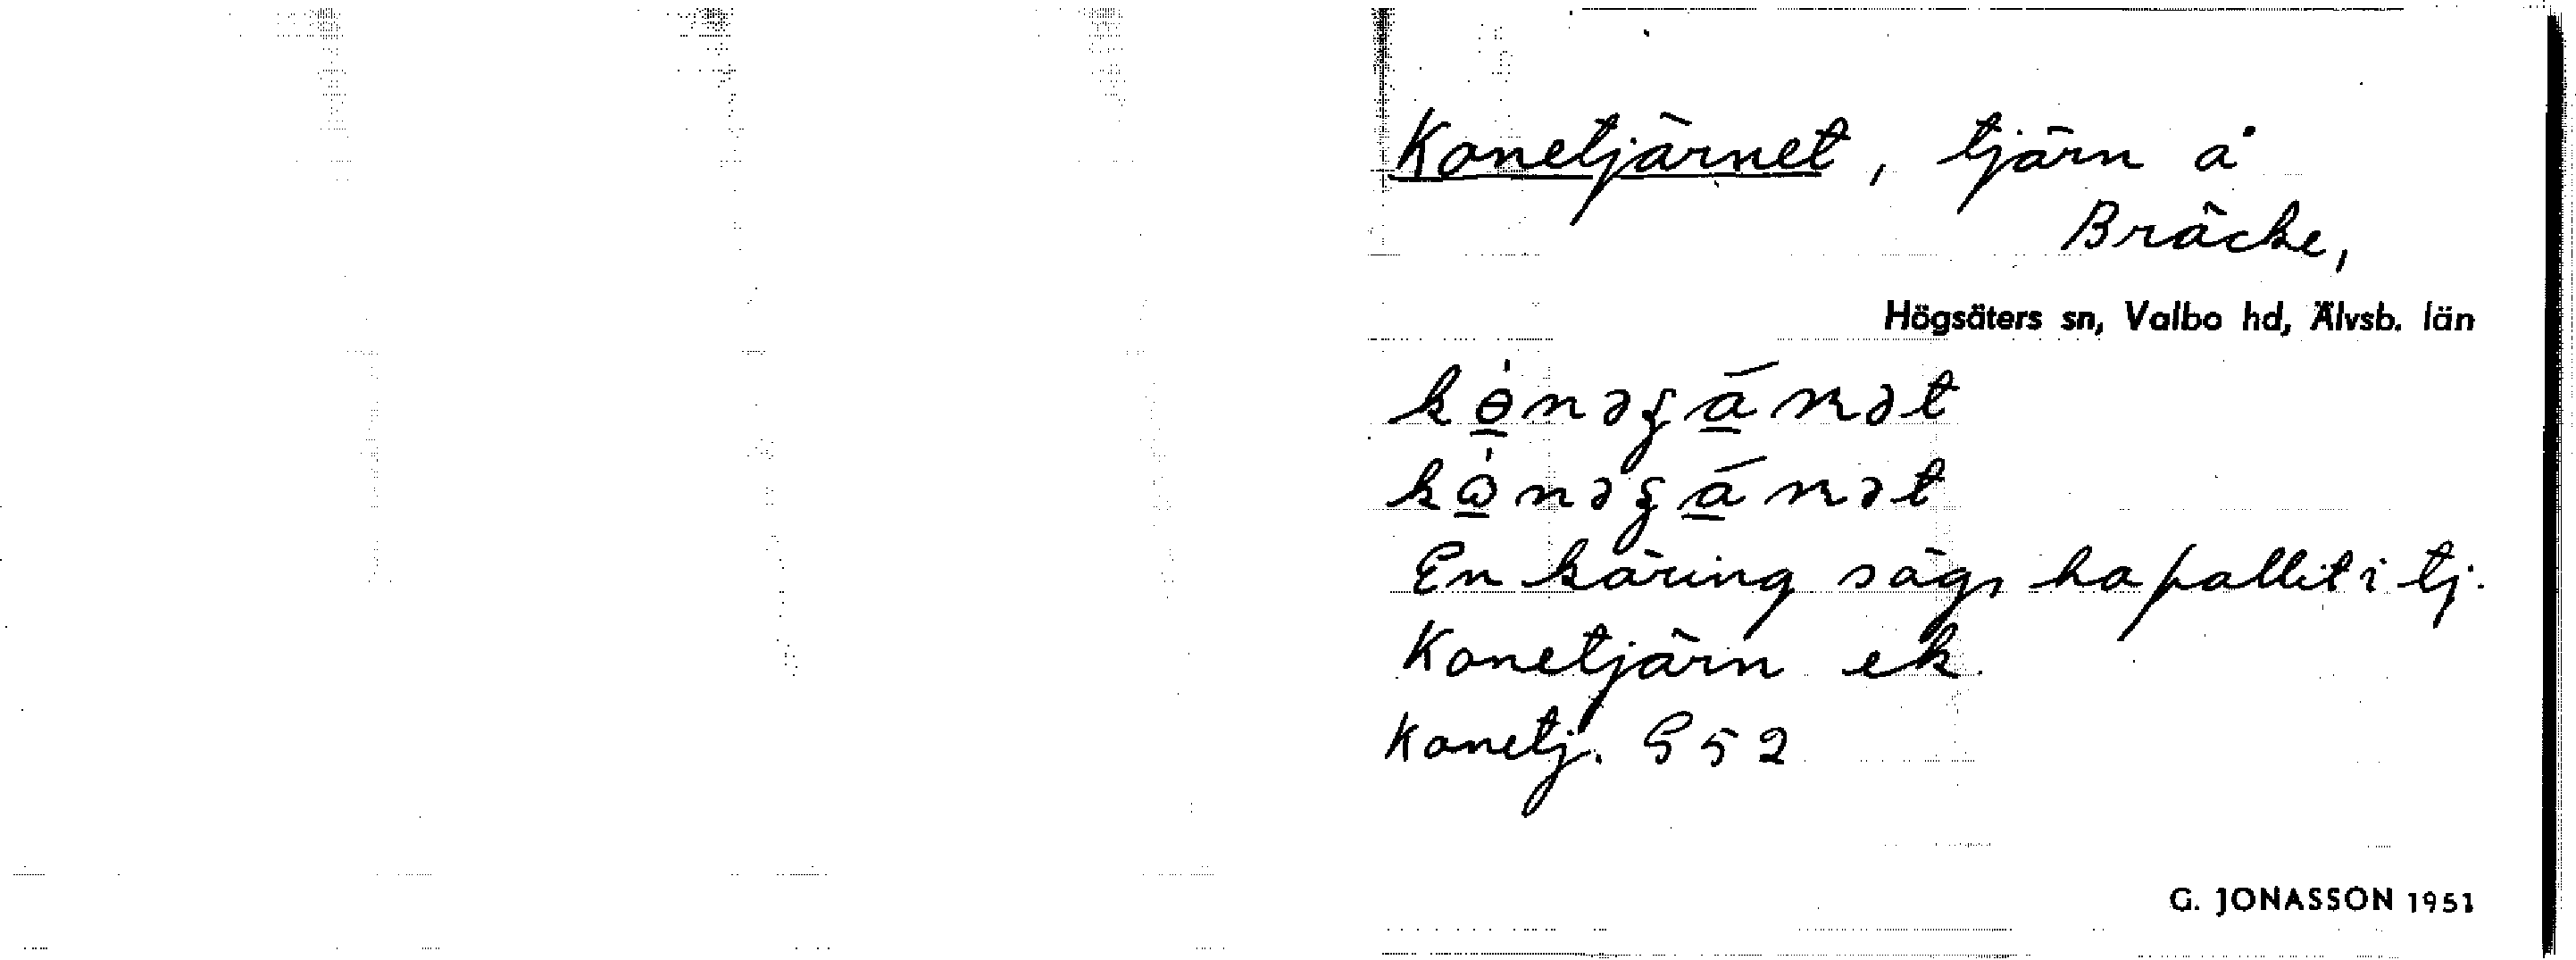 Konetjärnet, tjärn å
Bräcke,
Högsäters sn, Valbo hd, Älvsb. län
En käring sägs ha fallit i tj.
Konetjärn ek
Konetj. G 52
G. JONASSON 1951